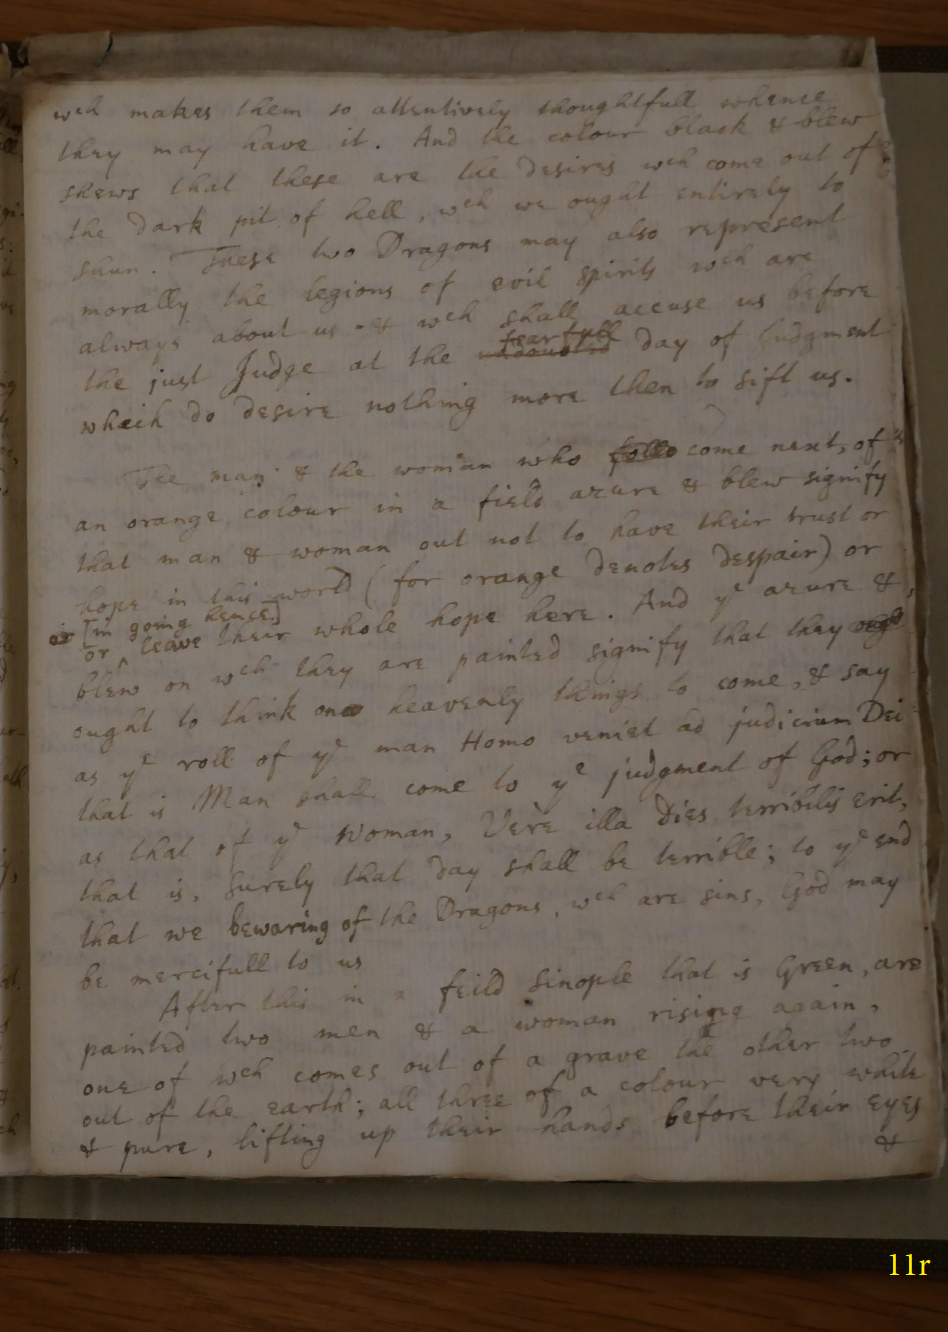 wch makes them so attentively thoughtfull whence
they may have it. And the colour black & blew
shews that these are the desires wch come out of
the dark pit of hell, wch we ought entirely to
shun. These two Dragons may also represent
morally the legions of evil spirits wch are
always about us & wch shall accuse us before
the just Judge at the fearfull day of Judgment
which do desire nothing more then to sift us.
The man & the woman who follo come next, of
an orange colour in a field azure & blew signify
that man & woman out not to have their trust or
hope in this world (for orange denotes despair) or
[in going hence]
or leave their whole hope here. And ye azure &
blew on wch they are painted signify that they ough
ought to think on heavenly things to come, & say
as ye roll of ye man Homo veniet ad judicium Dei
that is Man shall come to ye judgment of God; or
as that of ye Woman, Vere illa dies terribilis erit,
that is, Surely that day shall be terrible; to ye end
that we bewaring of the Dragons, wch are sins, God may
be mercifull to us
After this in a feild Sinople that is Green, are
painted two men & a woman rising again,
one of wch comes out of a grave the other two
out of the earth; all three of a colour very white
& pure, lifting up their hands before their eyes
&
11r